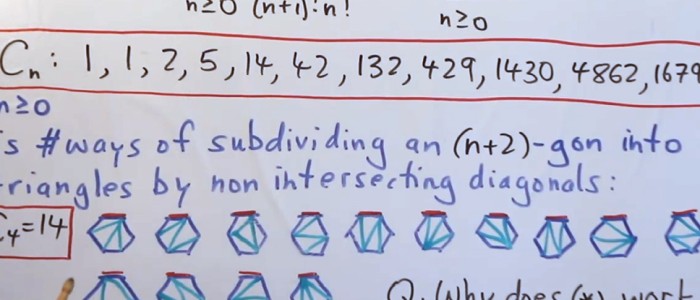 n≥0 (n+1)! n!
n≥0
Cn: 1, 1, 2, 5, 14, 42, 132, 429, 1430, 4862, 1679
n≥0
s #ways of subdividing an (n+2)-gon into
riangles by non intersecting diagonals:
4=14
Q. Why does (*) work